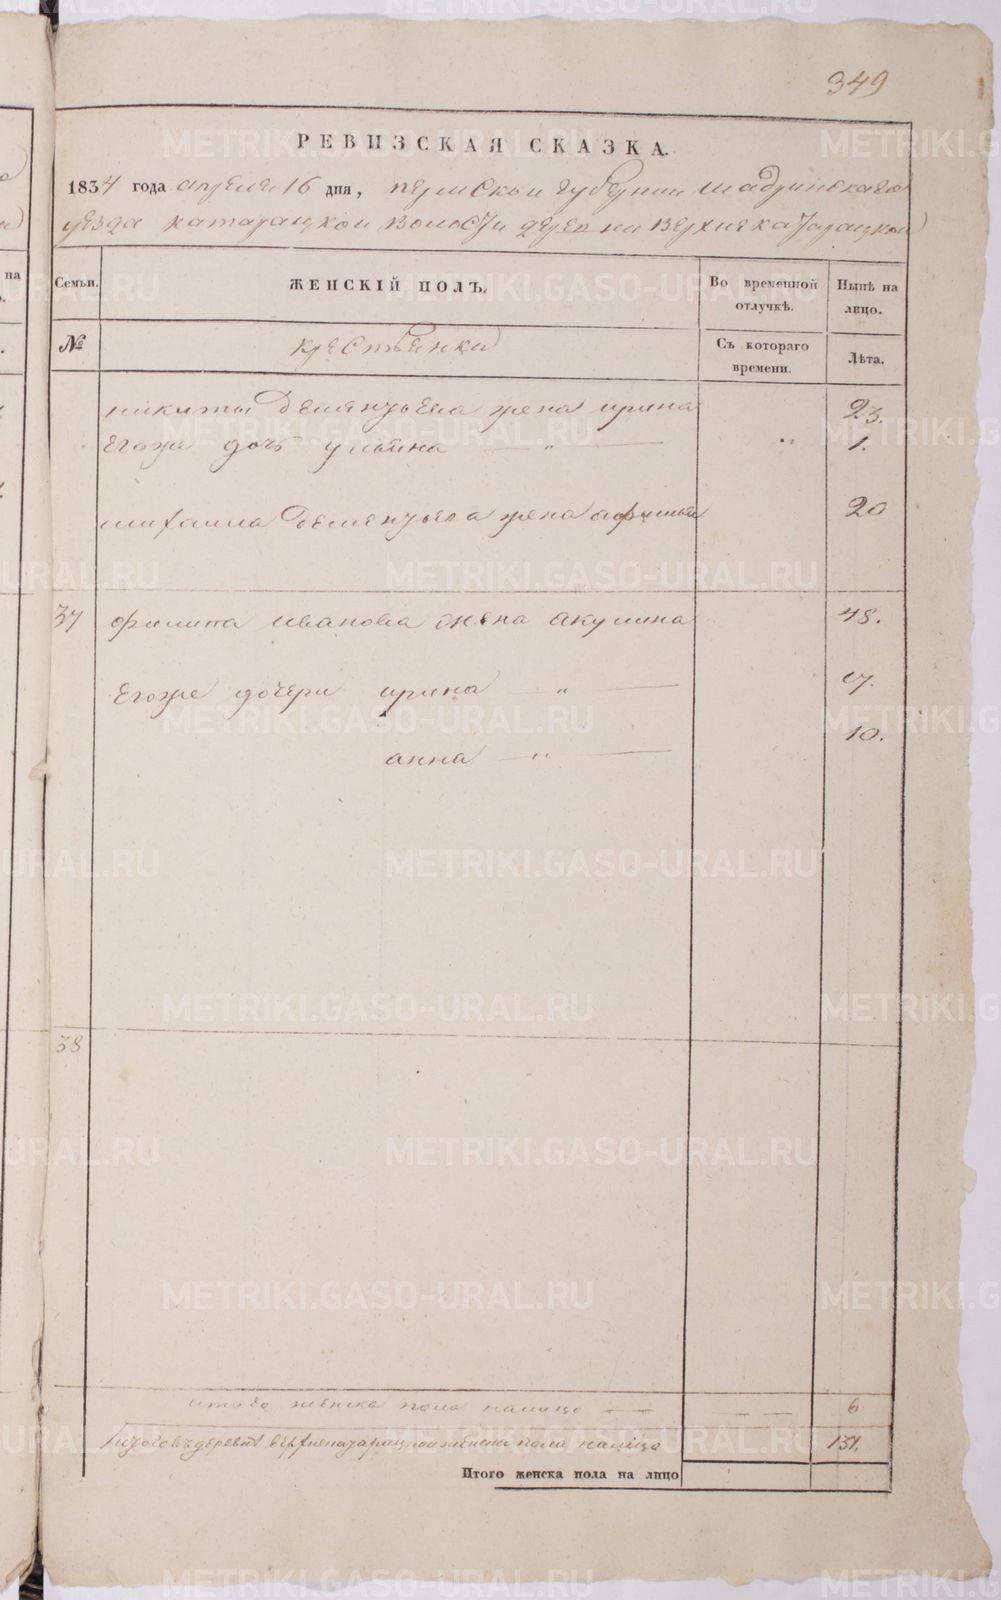 349
РЕВИЗСКАЯ СКАЗКА.
1834 года апреля 16 дня, пермской губернии шадринскаго
уезда катарацкой волости деревни верхнекатарацкой
на
Семьи. ЖЕНСКІЙ ПОЛЪ. Во временной отлучкѣ. Нынѣ на лицо.
№ крестьянки Съ котораго времени. Лѣта.
никиты дементьева жена ирина 23.
Егоже дочь ульяна — „ — „ 1.
михаила дементьева жена афимья 20
37 филипа иванова жена акулина 48.
Егоже дочери ирина „ —
анна — „ — 10.
38
итого женска пола налицо — — — — 6
итого въ деревне верхнекатарацкой женска пола налицо 131.
Итого женска пола на лицо
METRIKI.GASO-URAL.RU